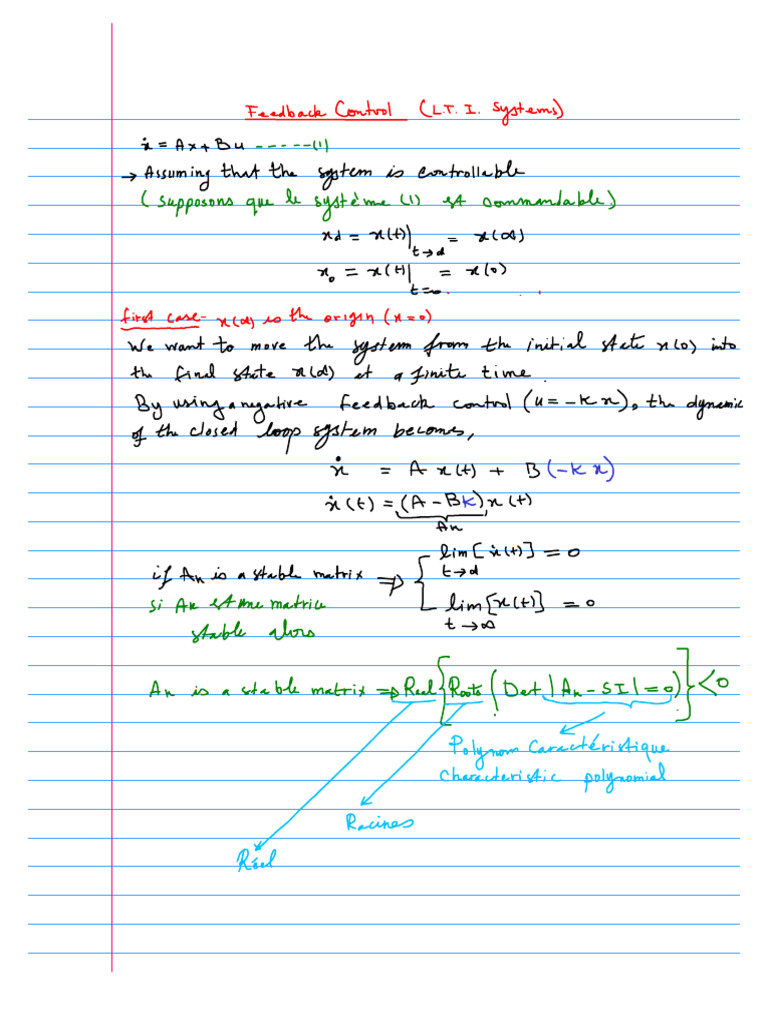 Feedback Control (L.T.I. Systems)
ẋ = Ax + Bu -----(1)
→ Assuming that the system is controllable
(Supposons que le système (1) est commandable)
xd = x(t)| t→∞ = x(∞)
x₀ = x(t)| t=0 = x(0)
first case- x(∞) is the origin (x=0)
We want to move the system from the initial state x(0) into
the final state x(∞) at a finite time.
By using a negative Feedback control (u = -k x), the dynamic
of the closed loop system becomes,
ẋ = A x(t) + B (-k x)
ẋ(t) = (A - Bk) x(t)
An
lim [ẋ(t)] = 0
if An is a stable matrix ⇒ t→∞
si An est une matrice lim [x(t)] = 0
stable alors t→∞
An is a stable matrix ⇒ Real {Roots (Det |An - SI| = 0)} < 0
Polynom Caractéristique
characteristic polynomial
Racines
Réel